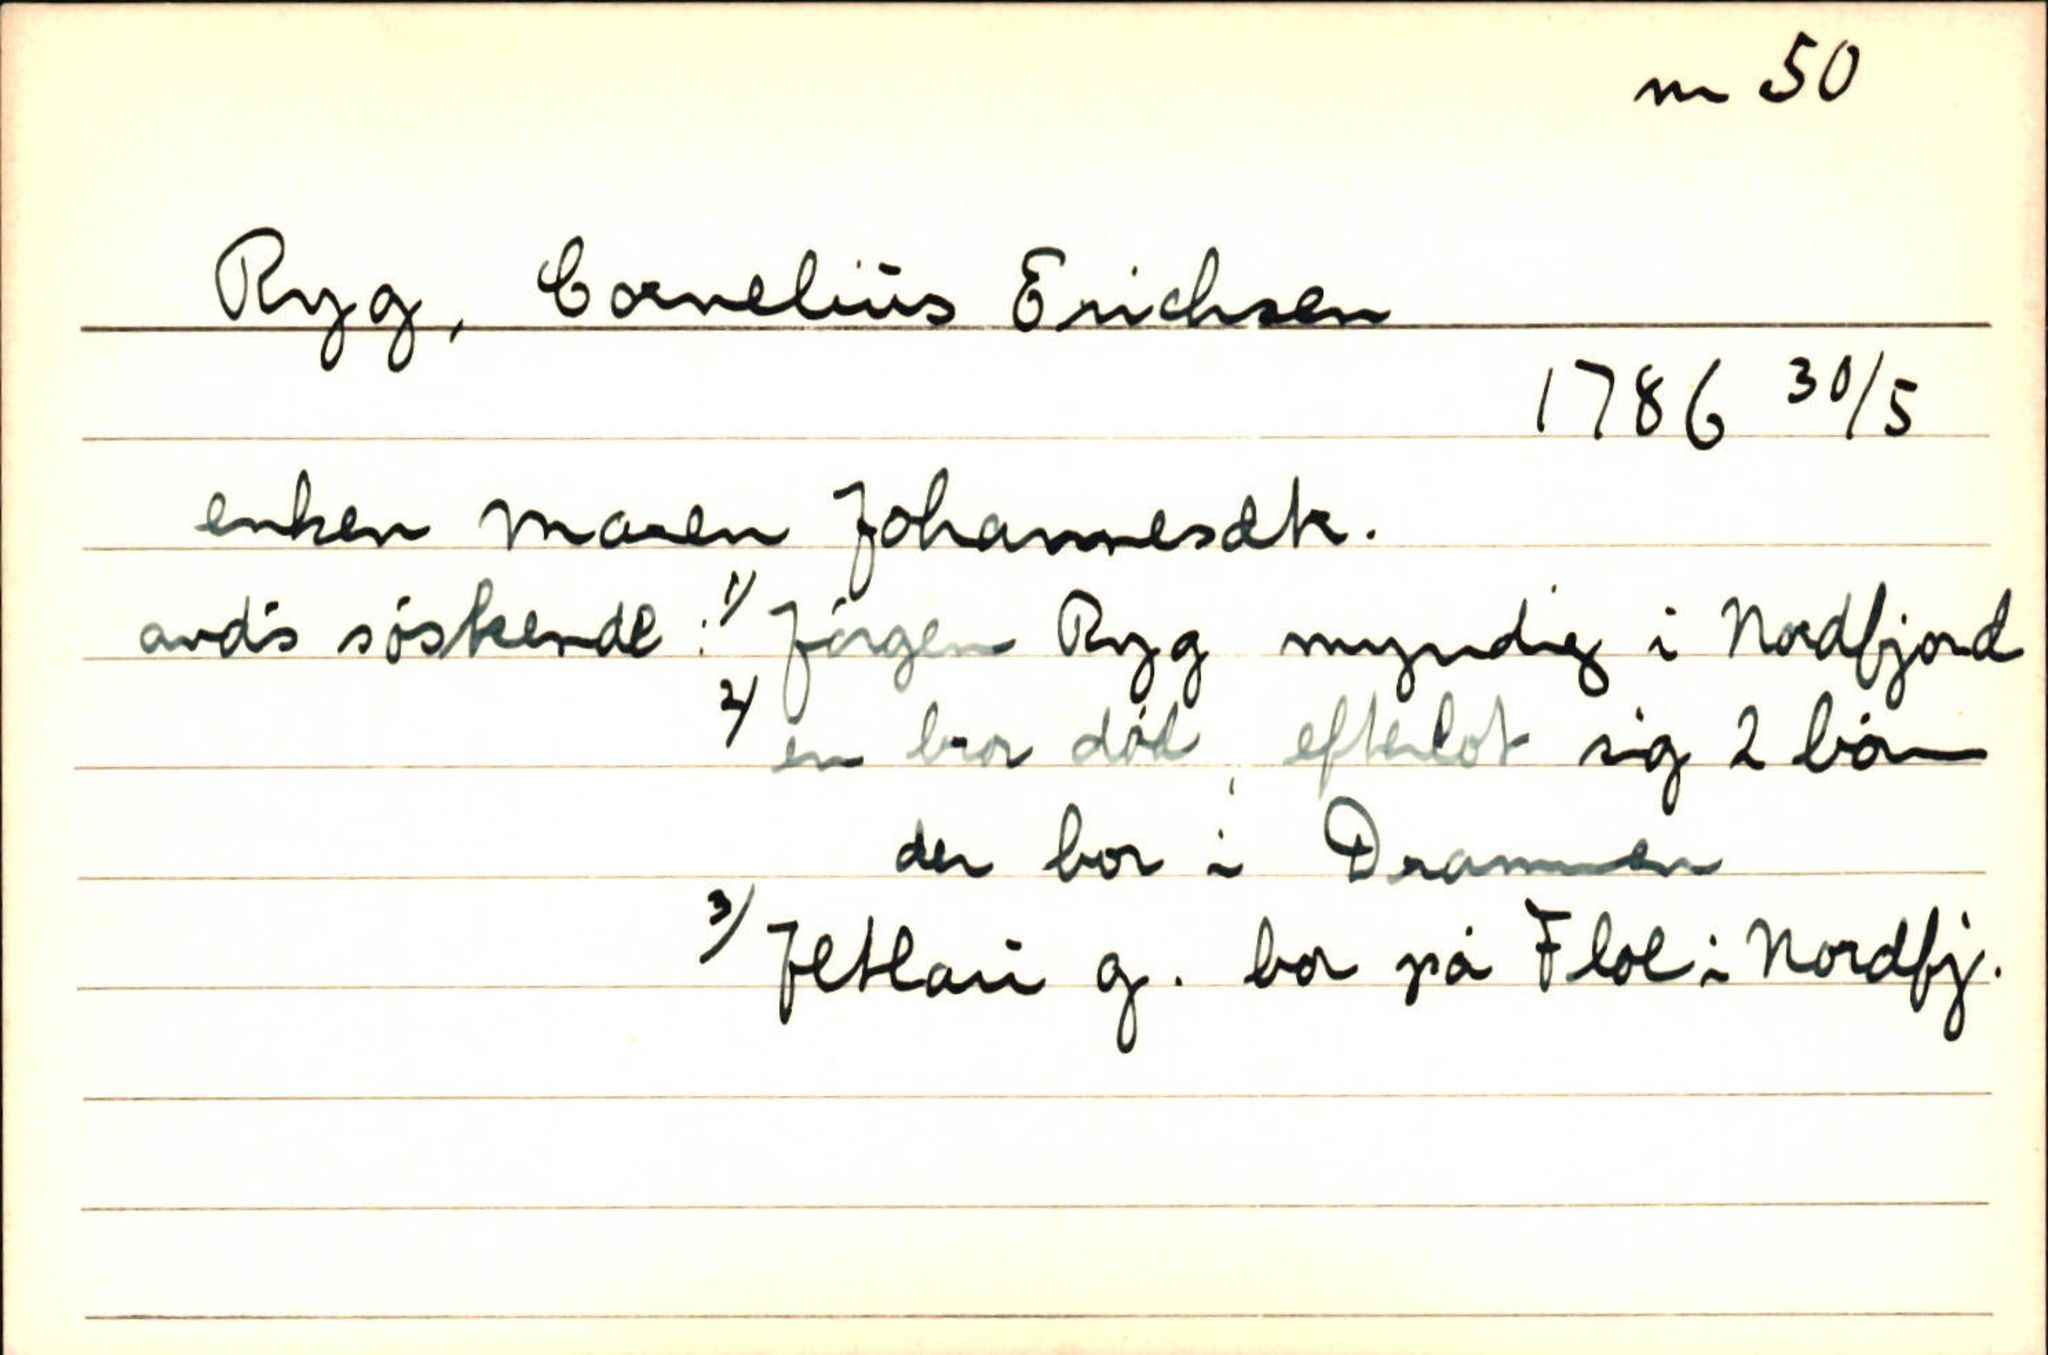 m 50
Ryg, Cornelius Erichsen
1786 30/5
enken Maren Johannesdtr.
avd's søskende : 1/ Jørgen Ryg myndig i Nordfjord
2/ en bror død, efterlot sig 2 børn
der bor i Drammen
3/ g. bor på Floe i Nordfj.